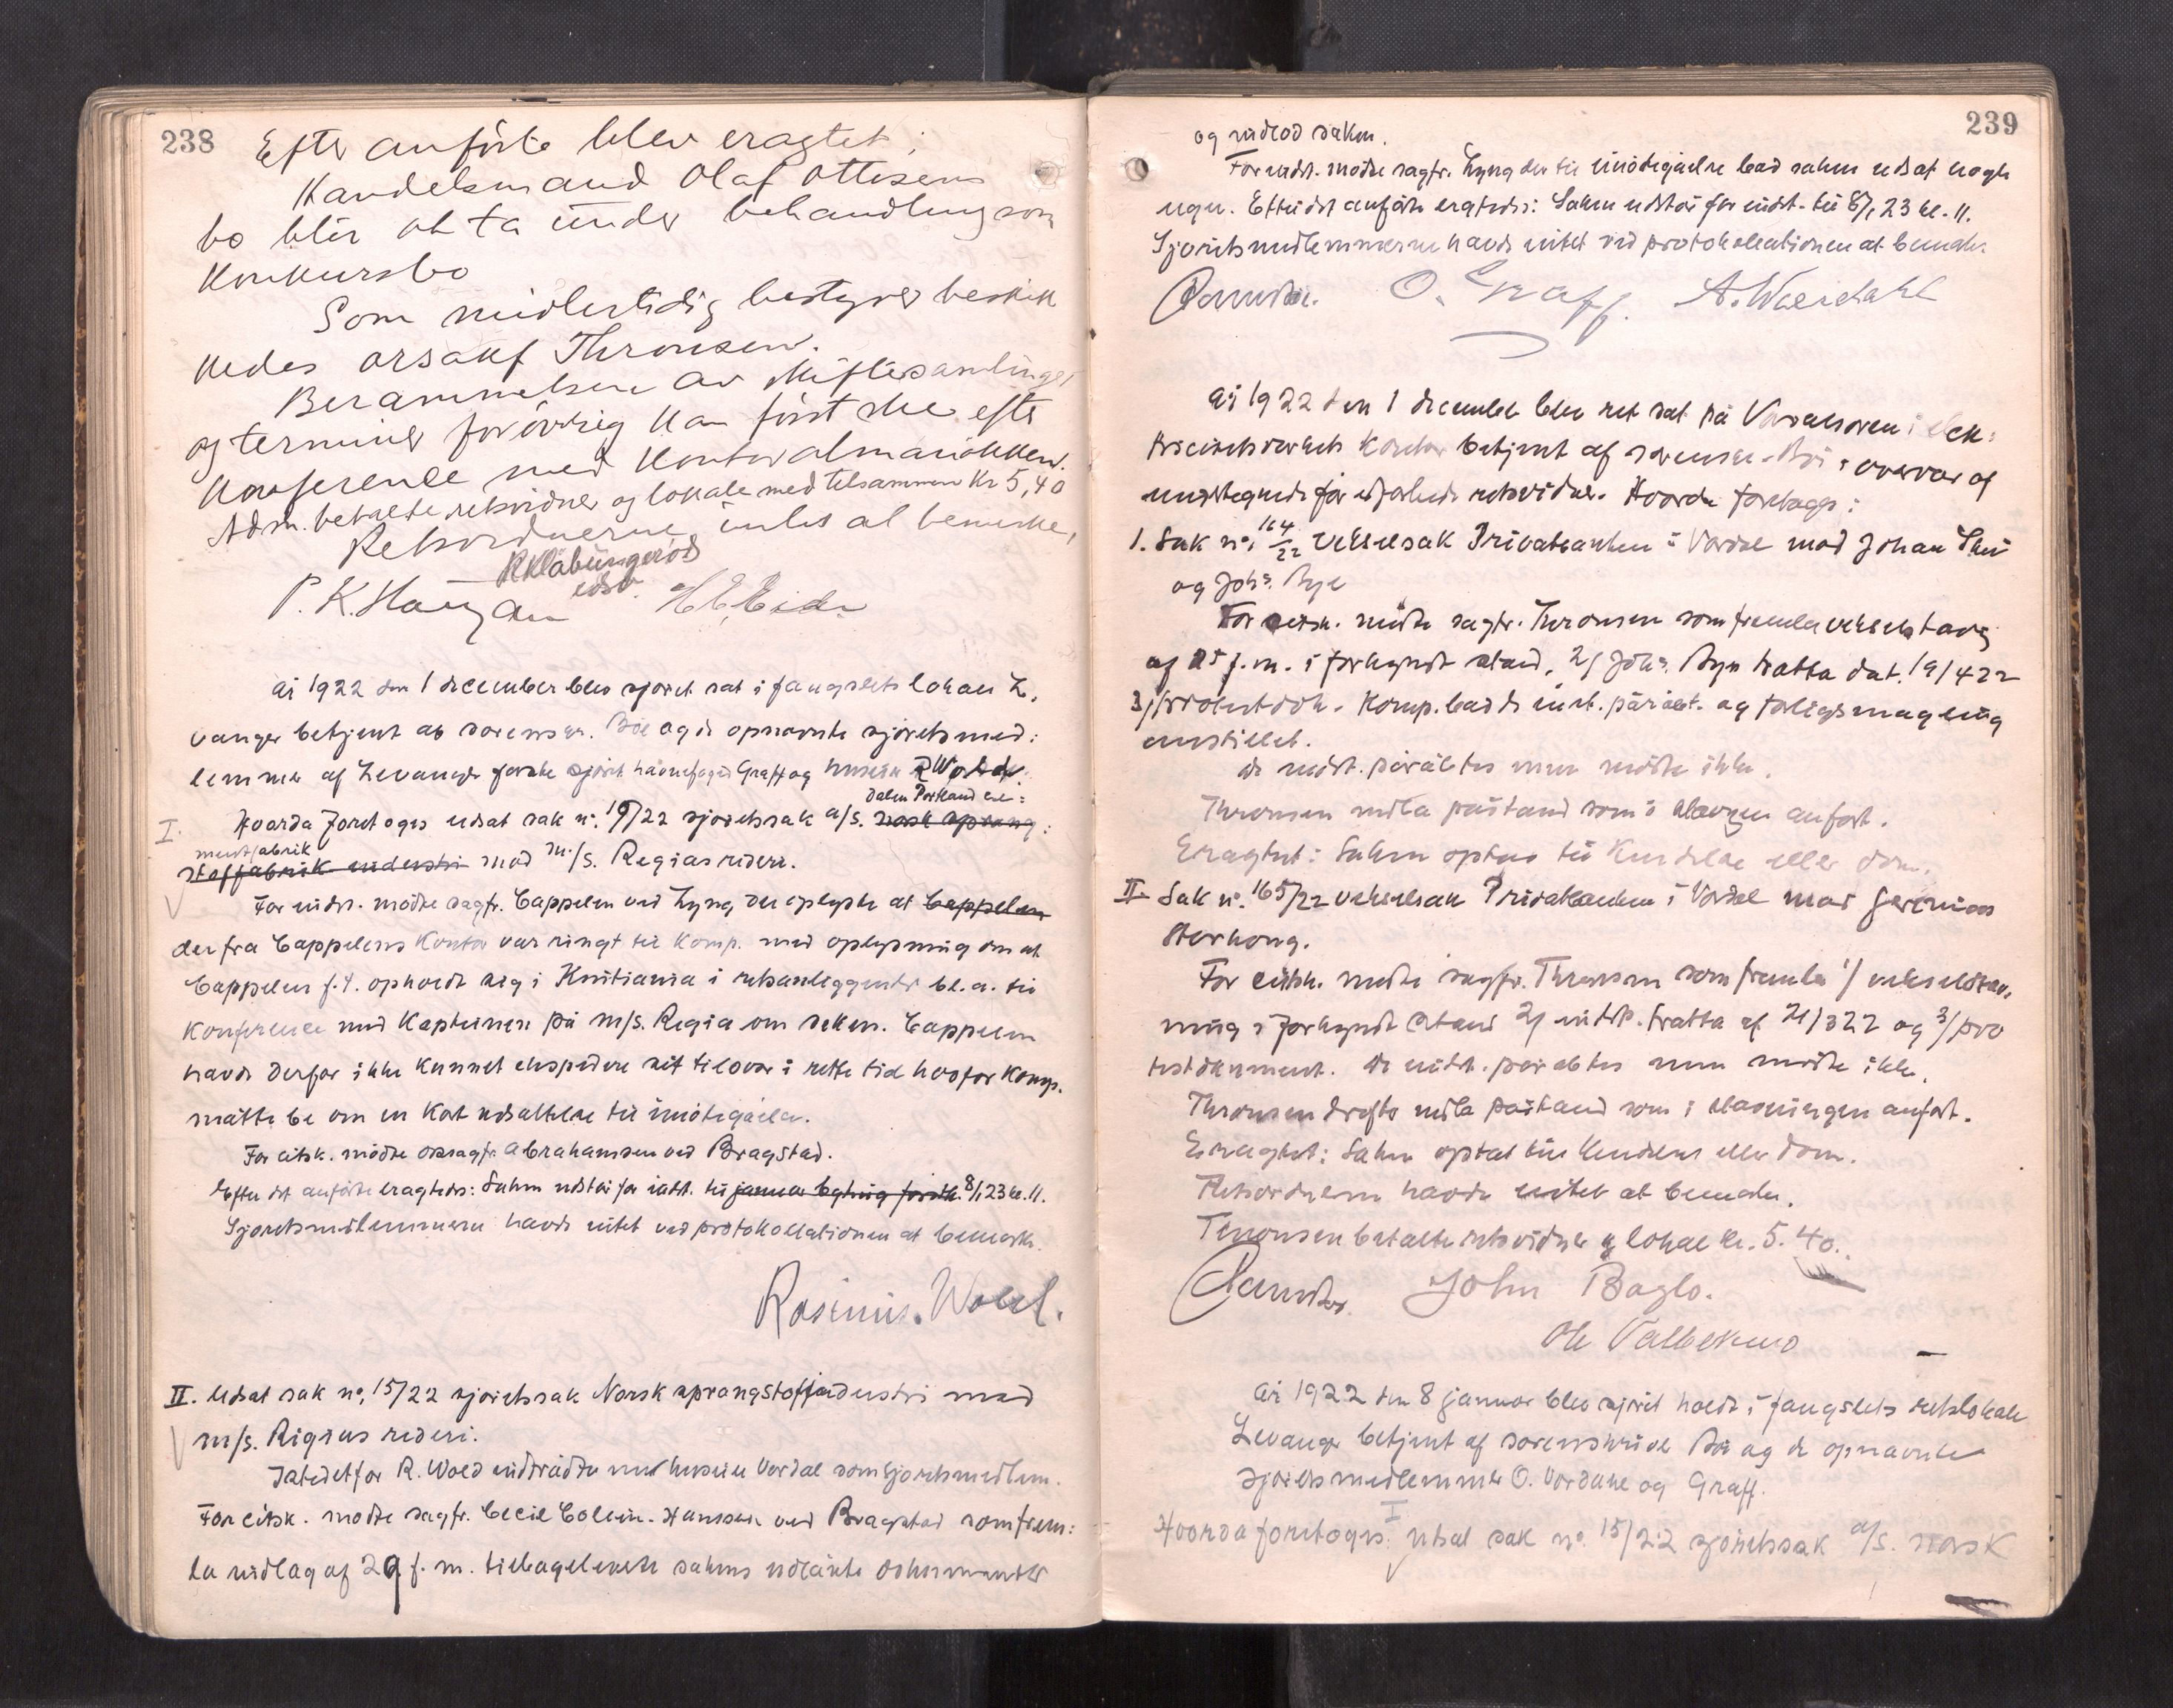 238
Efter anførte blev eragtet:
Handelsmand Olaf Ottesens
bo blir at ta under behandling som
Konkursbo
Som midlertidig bestyrer beskik
kedes orsakf Thronsen.
Berammelsen av skiftesamlinger
og terminer forøvrig kan først ske efter
Konference med Kontoralmanakken.
Adm. betalte retsvidner og lokale med tilsammen Kr 5,40
Retsvidnerne intet at bemerke,
R Klabungerød
edsv.
P. K. Haugan H E Eide
År 1922 den 1 december blev sjøret sat i fængslets lokale L.
vanger betjent av sorenskr. Bøe og de opnævnte sjøretsmed:
lemmer af Levanger faste sjøret havnefoged Graff og R Wold.
dalen Portland ce=
I. Hvorda foretoges utsat sak no. 19/22 sjøretssak a/s. norsk spræng:
mentfabrik
stoffabrik industri mod m/s. Regias rederi.
For indst. mødte sagfr. Cappelen ved Lyng, der oplyste at Cappelen
der fra Cappelens Kontor var ringt til Komp. med oplysning om at
Cappelen f.t. opholdt sig i Kristiania i retsanliggender bl.a. til
Konference med Kapteinen på m/s. Regia om saken. Cappelen
havde derfor ikke kunnet ekspedere sit tilsvar i rette tid hvorfor Komp.
måtte be om en kort utsættelse til imøtegåelse.
For citsk. mødte orsagfr. Abrahamsen ved Bragstad.
Efter det anførte eragtedes: Saken utstår for indst. til januar 8/1 23 kl. 11.
Sjøretsmedlemmerne havde intet ved protokollationen at bemærke.
Rasmus. Wold.
II. Utsat sak no. 15/22 sjøretssak Norsk sprængstofindustri mod
m/s. Regias rederi.
Istedetfor R. Wold indtrådte Verdal som sjøretsmedlem.
For citsk. mødte sagfr. Cecil Colein-Hanssen ved Bragstad som frem:
la indlæg af 29 f.m. tilbageleverte sakens utlånte dokumenter
239
og indlod saken.
For indst. mødte sagfr. Lyng der til imøtegåelse bad saken utsat nogle
uger. Efter det anførte eragtedes: Saken utstår for indst. til 8/1 23 kl. 11.
Sjøretsmedlemmerne havde intet ved protokollationen at bemærke.
O. Graff. A. Wærdahl
År 1922 den 1 december blev ret sat på Verdalsøren i elek:
tricitetsverkets Kontor betjent af sorenskr. Bøe, overvær af
undertegnede for edfæstede retsvidner. Hvorda foretages:
1. Sak no. 164/22 vekselsak Privatbanken i Verdal mod Johan
og Johs. Bye
For citsk. mødte sagfr. Thronsen som fremla vekselstævn
af 25 f.m. i forkyndt stand, 2/ Johs. Byes tratta dat. 19/4 22
3/ protestdok. Komp. bad de indst. påråbt. og forligsmægling
anstillet.
De indst. påråbtes men mødte ikke.
Thronsen nedla påstand som i stævningen anført.
Eragtet: Saken optas til Kendelse eller dom.
II. Sak no. 165/22 vekselsak Privatbanken i Verdal mod Jeremias
Storhaug.
For citsk. mødte sagfr. Thronsen som fremla 1/ vekselstæv.
ning i forkyndt stand 2/ indst. tratta af 21/3 22 og 3/ pro
testdokument. De indst. påråbtes men mødte ikke.
Thronsen nedla påstand som i stævningen anført.
Eragtet: Saken optat til Kendelse eller dom.
Retsvidnerne havde intet at bemerke.
Thronsen betalte retsvidner og lokale kr. 5.40.
John Baglo.
Ole
År 1922 den 8 januar blev sjøret holdt i fængslets retslokale
Levanger betjent af sorenskriver Bøe og de opnævnte
sjøretsmedlemmer O. Verdahl og Graff.
I
Hvorda foretoges: Utsat sak no. 15/22 sjøretssak a/s. norsk